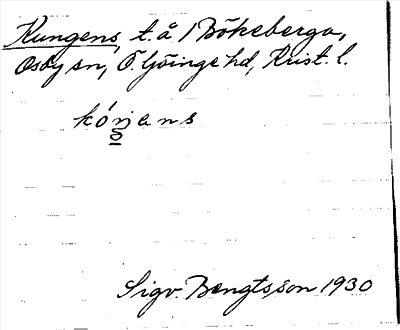 Kungens, t. å 1 Bökeberga,
Osby sn, Ö. Göinge hd, Krist. l.
kóŋens
Sigv. Bengtsson 1930